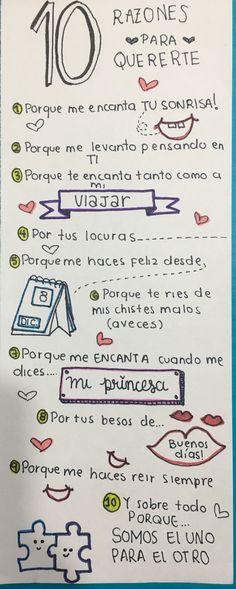 10 RAZONES
PARA
QUERERTE
1 Porque me encanta TU SONRISA!
2 Porque me levanto pensando en
TI
3 Porque te encanta tanto como a
mi
VIAJAR
4 Por tus locuras
5 Porque me haces feliz desde
8
DIC.
6 Porque te ries de
mis chistes malos
(aveces)
7 Porque me ENCANTA cuando me
dices....
mi princesa
8 Por tus besos de...
Buenos
días!
9 Porque me haces reir siempre
10 Y sobre todo
PORQUE...
SOMOS El UNO
PARA El OTRO